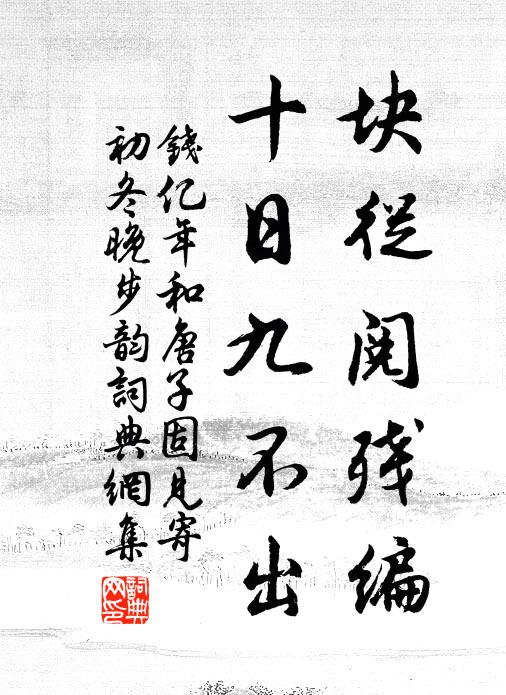 块從阅残编
十日九不出
錢亿年和唐子固見寄
初冬晚步韵詞典網集
詞典